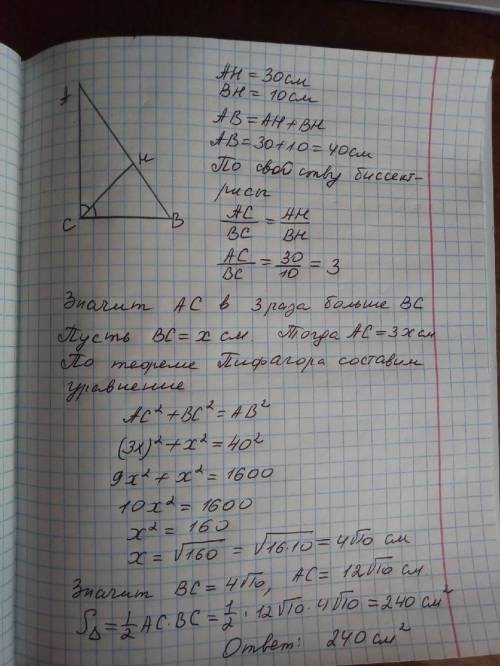 AH = 30см
BH = 10см
AB = AH + BH
AB = 30 + 10 = 40см
По свойству биссект-
рисы
AC/BC = AH/BH
AC/BC = 30/10 = 3
A
H
C
B
Значит AC в 3 раза больше BC
Пусть BC = x см. Тогда AC = 3x см
По теореме Пифагора составим
уравнение
AC² + BC² = AB²
(3x)² + x² = 40²
9x² + x² = 1600
10x² = 1600
x² = 160
x = √160 = √16·10 = 4√10 см
Значит BC = 4√10, AC = 12√10 см.
S△ = 1/2 AC·BC = 1/2 · 12√10 · 4√10 = 240 см²
Ответ: 240 см²